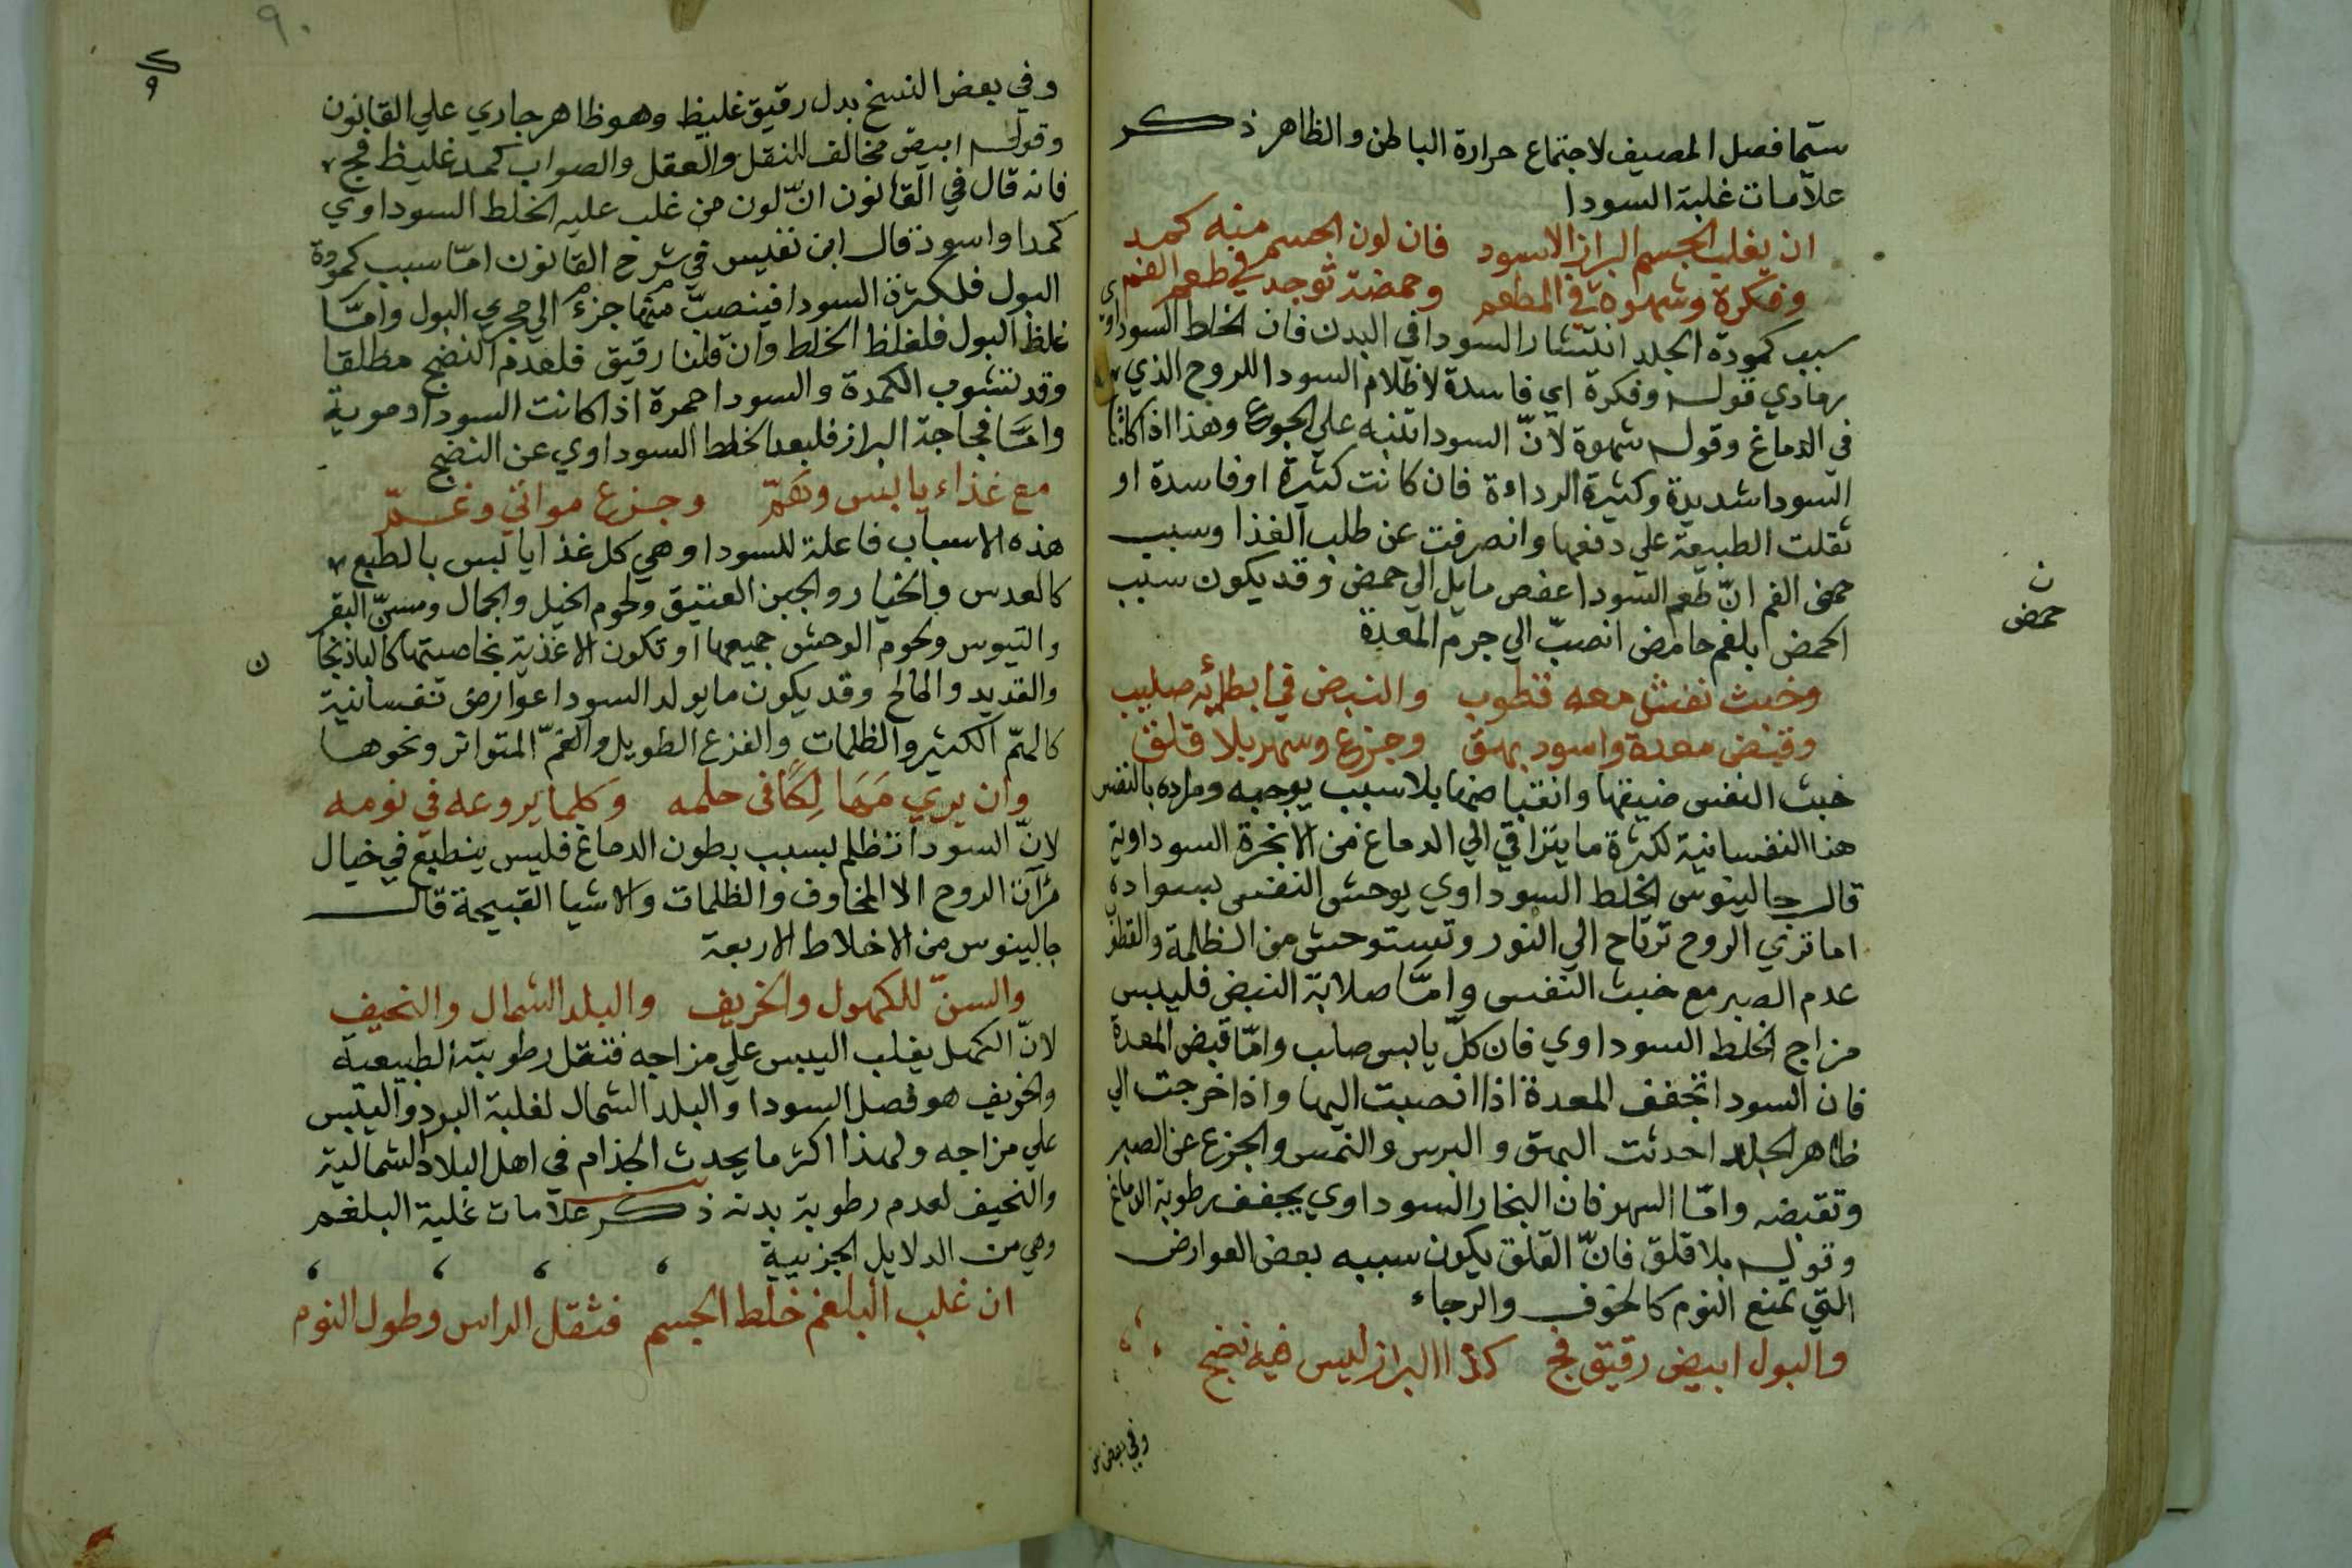 سيّما فصل المصيف لاجتماع حرارة الباطن والظاهر ذكر
علامات غلبة السودا
ان يغلب الجسم البراز الاسود فان لون الجسم منه كمد
وفكرة وشهوة في المطعم وحمضة توجد في طعم الفم
سبب كمودة الجلد انتشار السودا في البدن فان الخلط السوداوي
رمادي قوله وفكرة اي فاسدة لاظلام السودا للروح الذي
في الدماغ وقوله شهوة لانّ السودا تنبه علي الجوع وهذا اذا كانت
السودا شديدة وكثيرة الرداءة فان كانت كثيرة اوفاسدة او
ثقلت الطبيعة علي دفعها وانصرفت عن طلب الغذا وسبب
حمض الفم انّ طعم السودا عفص مايل الي حمض وقد يكون سبب
الحمض ابلغم حامض انصبّ الي جرم المعدة
ن
حمض
وخبث نفس معه قطوب والنبض في ابطائه صليب
وقبض معدة واسود بهق وجزع وسهر بلا قلق
خبث النفس ضيقها وانقباضها بلا سبب يوجبه ومراده بالنفس
هنا النفسانية لكثرة ما يتراقي الي الدماغ من الابخرة السوداوية
قال جالينوس الخلط السوداوي يوحش النفس بسواده
اما تري الروح ترتاح الي النور وتستوحش من الظلمة والقطو
عدم الصبر مع خبث النفس وامّا صلابة النبض فليبس
مزاج الخلط السوداوي فان كلّ يابس صلب وامّا قبض المعدة
فان السودا تجفف المعدة اذا انصبت اليها واذا خرجت الي
ظاهر الجلد احدثت البهق والبرس والنمس والجزع عن الصبر
وتقبضه وامّا السهر فان البخار السوداوي يجفف رطوبة الدماغ
وقوله بلا قلق فانّ القلق يكون سببه بعض العوارض
التي تمنع النوم كالخوف والرجاء
والبول ابيض رقيق فج كذا البراز ليس فيه نضج
وفي بعض
٩٠
وفي بعض النسخ بدل رقيق غليظ وهو ظاهر جاري علي القانون
وقوله ابيض مخالف للنقل والعقل والصواب كمد غليظ فج
فانه قال في القانون انّ لون من غلب عليه الخلط السوداوي
كمدا واسود قال ابن نفيس في شرح القانون امّا سبب كمودة
البول فلكثرة السودا فينصبّ منها جزء الي مجري البول وامّا
غلظ البول فلغلظ الخلط وان قلنا رقيق فلعدم النضج مطلقا
وقد تشوب الكمدة والسودا حمرة اذا كانت السودا دموية
وامّا فجاجة البراز فلبعد الخلط السوداوي عن النضج
مع غذاء يابس وهمّ وجزع مواتي وغمّ
هذه الاسباب فاعلة للسودا وهي كل غذا يابس بالطبع
كالعدس والخيار والجبن العتيق ولحوم الخيل والجمال ومسنّ البقر
والتيوس ولحوم الوحش جميعها او تكون الاغذية بخاصيتها كالباذنجا
ن
والقديد والمالح وقد يكون ما يولد السودا عوارض نفسانية
كالهمّ الكثير والظلمات والفزع الطويل والغمّ المتواتر ونحوها
وان يري مهالكا في حلمه وكلما يروعه في نومه
لانّ السودا تظلم بسبب بطون الدماغ فليس ينطبع في خيال
مرآة الروح الا المخاوف والظلمات والاشيا القبيحة قال
جالينوس من الاخلاط الاربعة
والسنّ للكهول والخريف والبلد الشمال والنحيف
لانّ الكهل يغلب اليبس علي مزاجه فتقل رطوبته الطبيعية
والخريف هو فصل السودا والبلد الشمال لغلبة البرد واليبس
علي مزاجه ولهذا اكثر ما يحدث الجذام في اهل البلاد الشمالية
والنحيف لعدم رطوبة بدنه ذكر علامات غلبة البلغم
وهي من الدلايل الجزيية
ان غلب البلغم خلط الجسم فثقل الراس وطول النوم